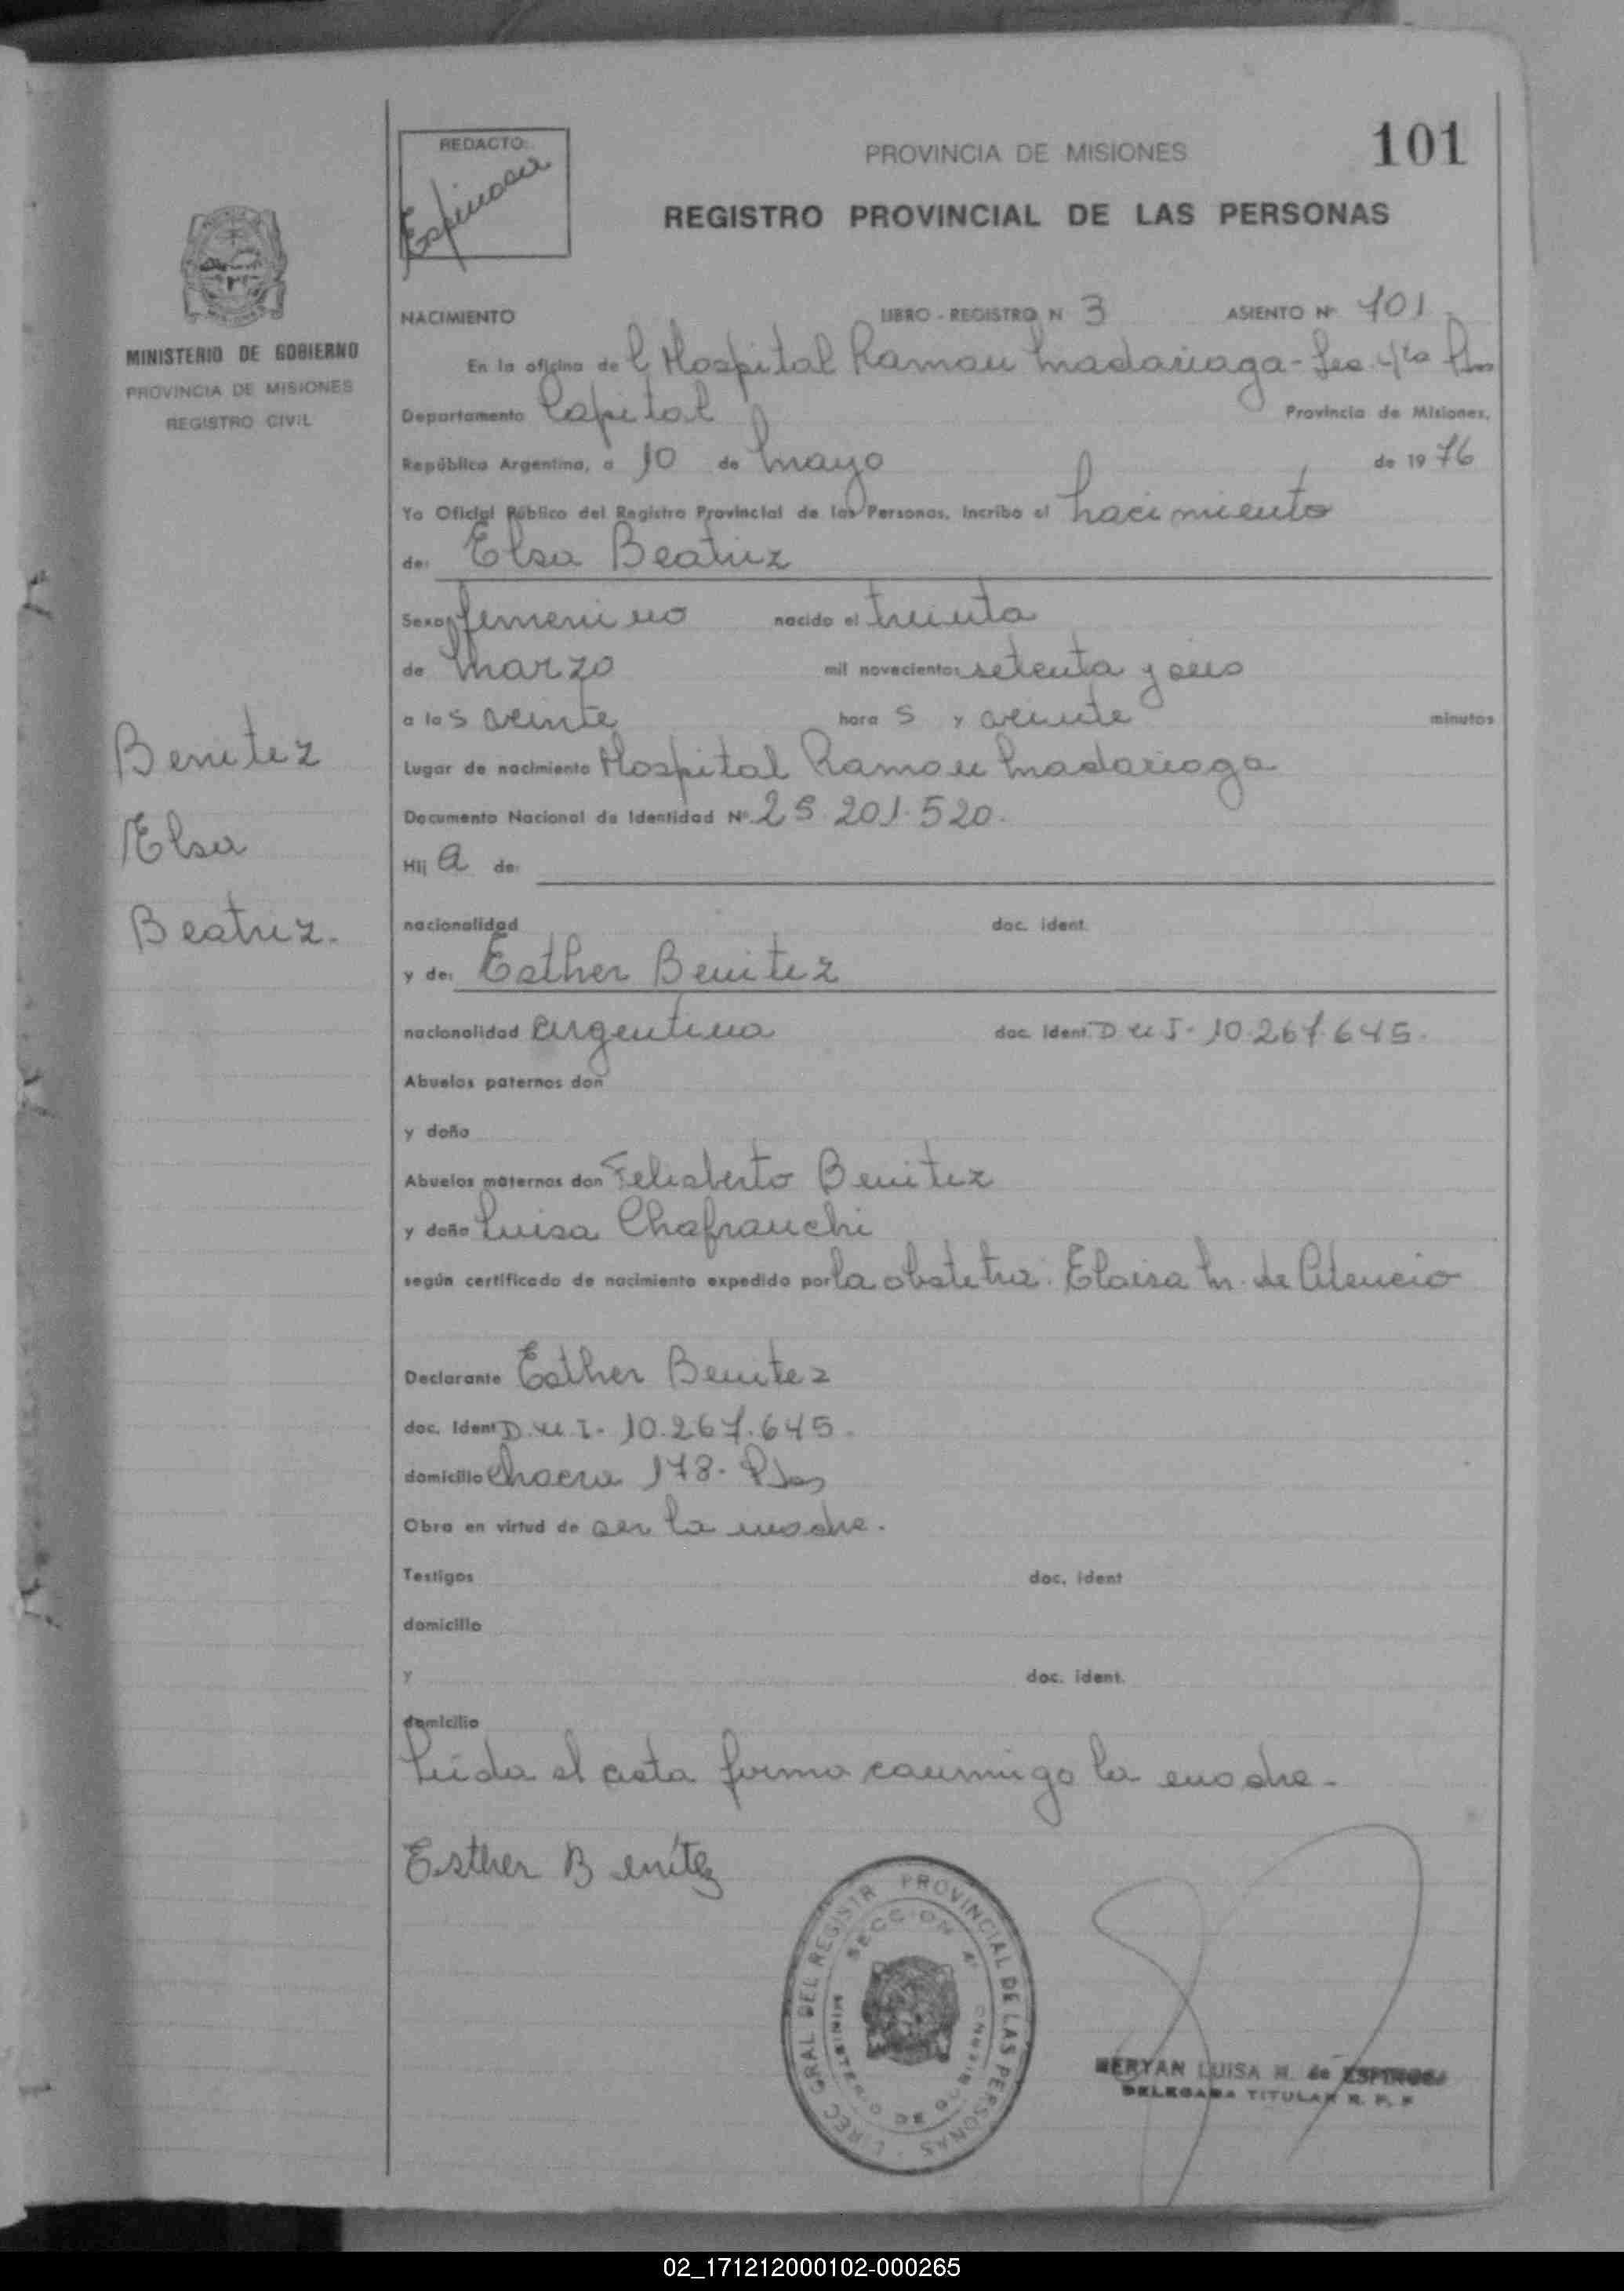 REDACTO:
Espinosa
PROVINCIA DE MISIONES
101
REGISTRO PROVINCIAL DE LAS PERSONAS
MINISTERIO DE GOBIERNO
PROVINCIA DE MISIONES
REGISTRO CIVIL
NACIMIENTO LIBRO - REGISTRO N 3 ASIENTO Nº 701
En la oficina del Hospital Ramon Madariaga - Sec. 4ta
Departamento Capital Provincia de Misiones,
República Argentina, a 10 de Mayo de 1976
Yo Oficial Público del Registro Provincial de las Personas, incribo el Nacimiento
de: Elsa Beatriz
Sexo femenino nacido el treinta
de Marzo mil novecientos setenta y seis
a las veinte horas y veinte minutos
Lugar de nacimiento Hospital Ramon Madariaga
Documento Nacional de Identidad Nº 25.201.520.
Hija de:
nacionalidad doc. ident.
y de: Esther Benitez
nacionalidad argentina doc. ident. D N I - 10.267.645.
Abuelos paternos don
y doña
Abuelos maternos don Felisberto Benitez
y doña Luisa Chafranchi
según certificado de nacimiento expedido por la obstetra: Eloisa M. de Atencio
Declarante Esther Benitez
doc. ident D.N.I- 10.267.645.
domicilio Chacra 178. Pdas
Obra en virtud de ser la madre.
Testigos doc. ident
domicilio
y doc. ident.
domicilio
Leida el acta firma conmigo la madre.
Esther Benítez
Benitez
Elsa
Beatriz.
DIREC GRAL DEL REGISTR PROVINCIAL DE LAS PERSONAS
SECCION 4ª
MINISTERIO DE GOBIERNO
MERYAN LUISA M. de ESPINOSA
DELEGADA TITULAR R. P. P
02_171212000102-000265